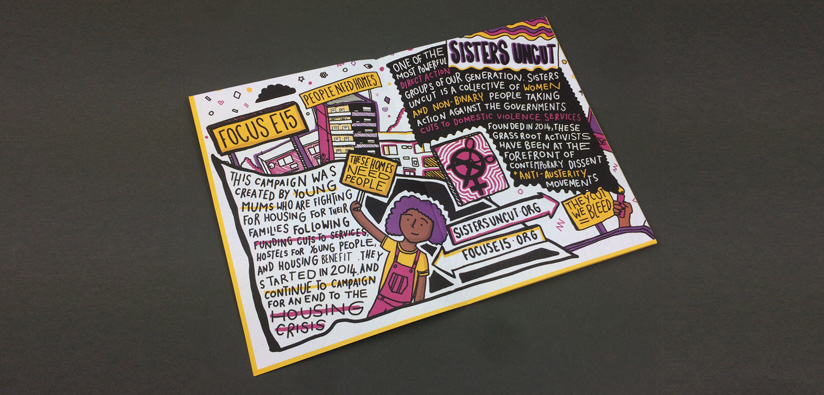 FOCUS E15
PEOPLE NEED HOMES
THIS CAMPAIGN WAS
CREATED BY YOUNG
MUMS WHO ARE FIGHTING
FOR HOUSING FOR THEIR
FAMILIES FOLLOWING
FUNDING CUTS TO SERVICES,
HOSTELS FOR YOUNG PEOPLE,
AND HOUSING BENEFIT. THEY
STARTED IN 2014, AND
CONTINUE TO CAMPAIGN
FOR AN END TO THE
HOUSING
CRISIS
THESE HOMES
NEED
PEOPLE
SISTERS UNCUT
ONE OF THE
MOST POWERFUL
DIRECT ACTION
GROUPS OF OUR GENERATION. SISTERS
UNCUT IS A COLLECTIVE OF WOMEN
AND NON-BINARY PEOPLE TAKING
ACTION AGAINST THE GOVERNMENTS
CUTS TO DOMESTIC VIOLENCE SERVICES
FOUNDED IN 2014, THESE
GRASS ROOT ACTIVISTS
HAVE BEEN AT THE
FOREFRONT OF
CONTEMPORARY DISSENT
+ ANTI-AUSTERITY
MOVEMENTS
SISTERSUNCUT.ORG
FOCUSE15.ORG
THEY CUT
WE BLEED